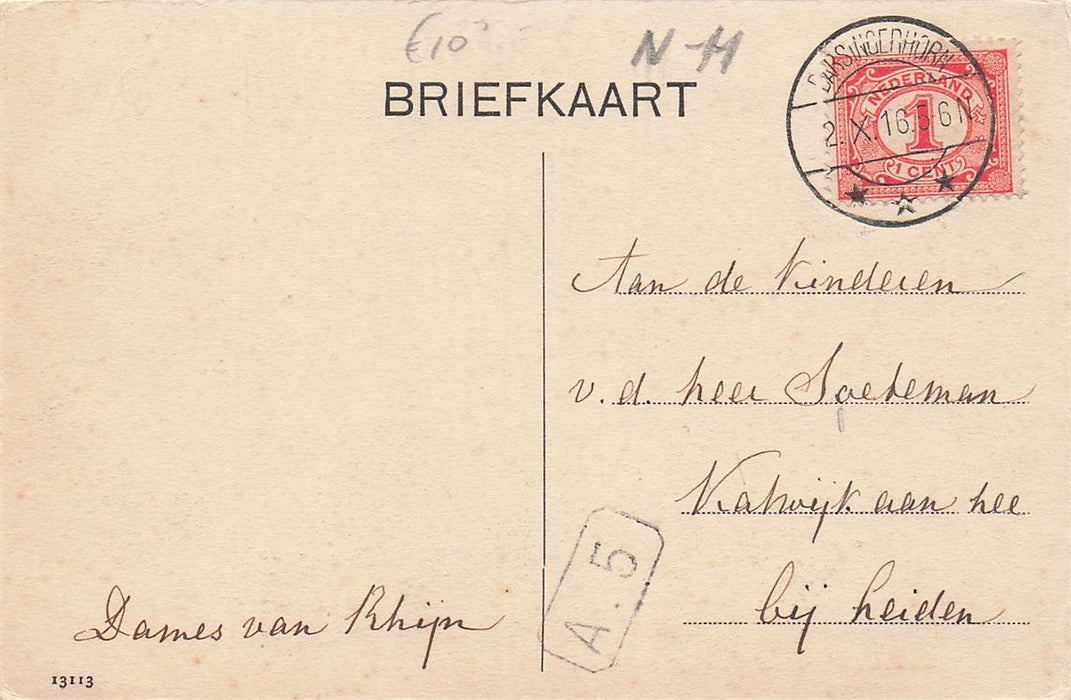 €10
N-H
BRIEFKAART
BARSINGERHORN
2.X.16. 6N
NEDERLAND
1
1 CENT
Aan de Kinderen
v. d. heer Soeteman
Katwijk aan Zee
bij Leiden
A.5
Dames van Rhijn
13113